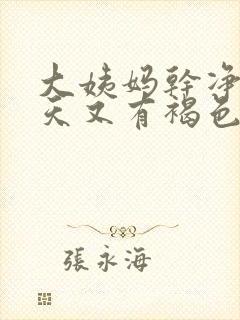 大姨妈幹净
天又有褐色
張永海